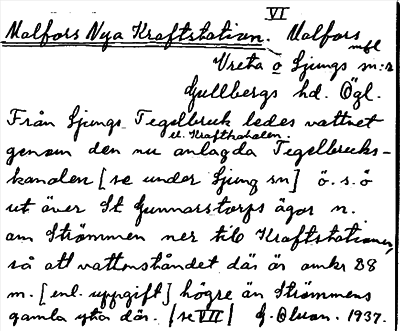 VI
Malfors Nya Kraftstation. Malfors
mfl
Vreta o Ljungs sn:r
Gullbergs hd. Ögl.
Från Ljungs Tegelbruk ledes vattnet
el. Kraftkanalen.
genom den nu anlagda Tegelbruks-
kanalen [se under Ljung sn] ö. s. ö
ut över St Gunnarstorps ägor n.
om Strömmen ner till Kraftstationen,
så att vattenståndet där är omkr 28
m. [enl. uppgift] högre än Strömmens
gamla yta där. [se VII] G. Olson. 1937.